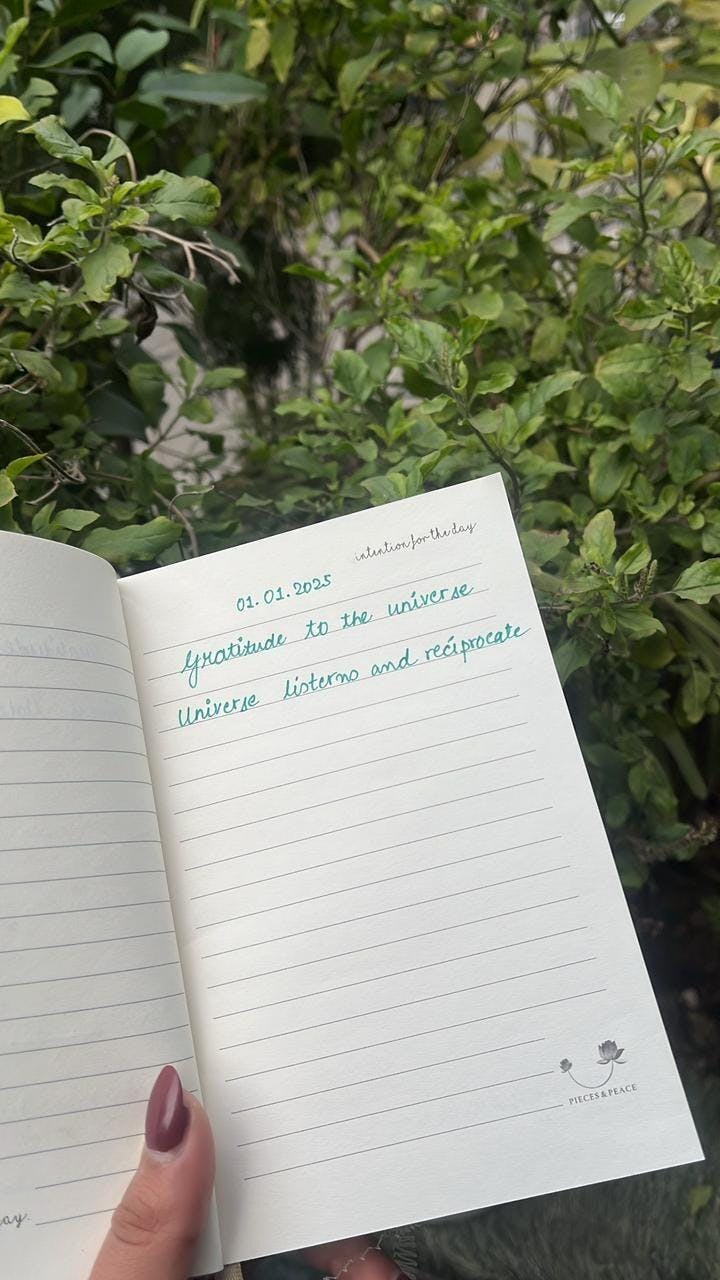 intention for the day
01.01.2025
Gratitude to the universe
Universe listerns and reciprocate
PIECES & PEACE
ay.